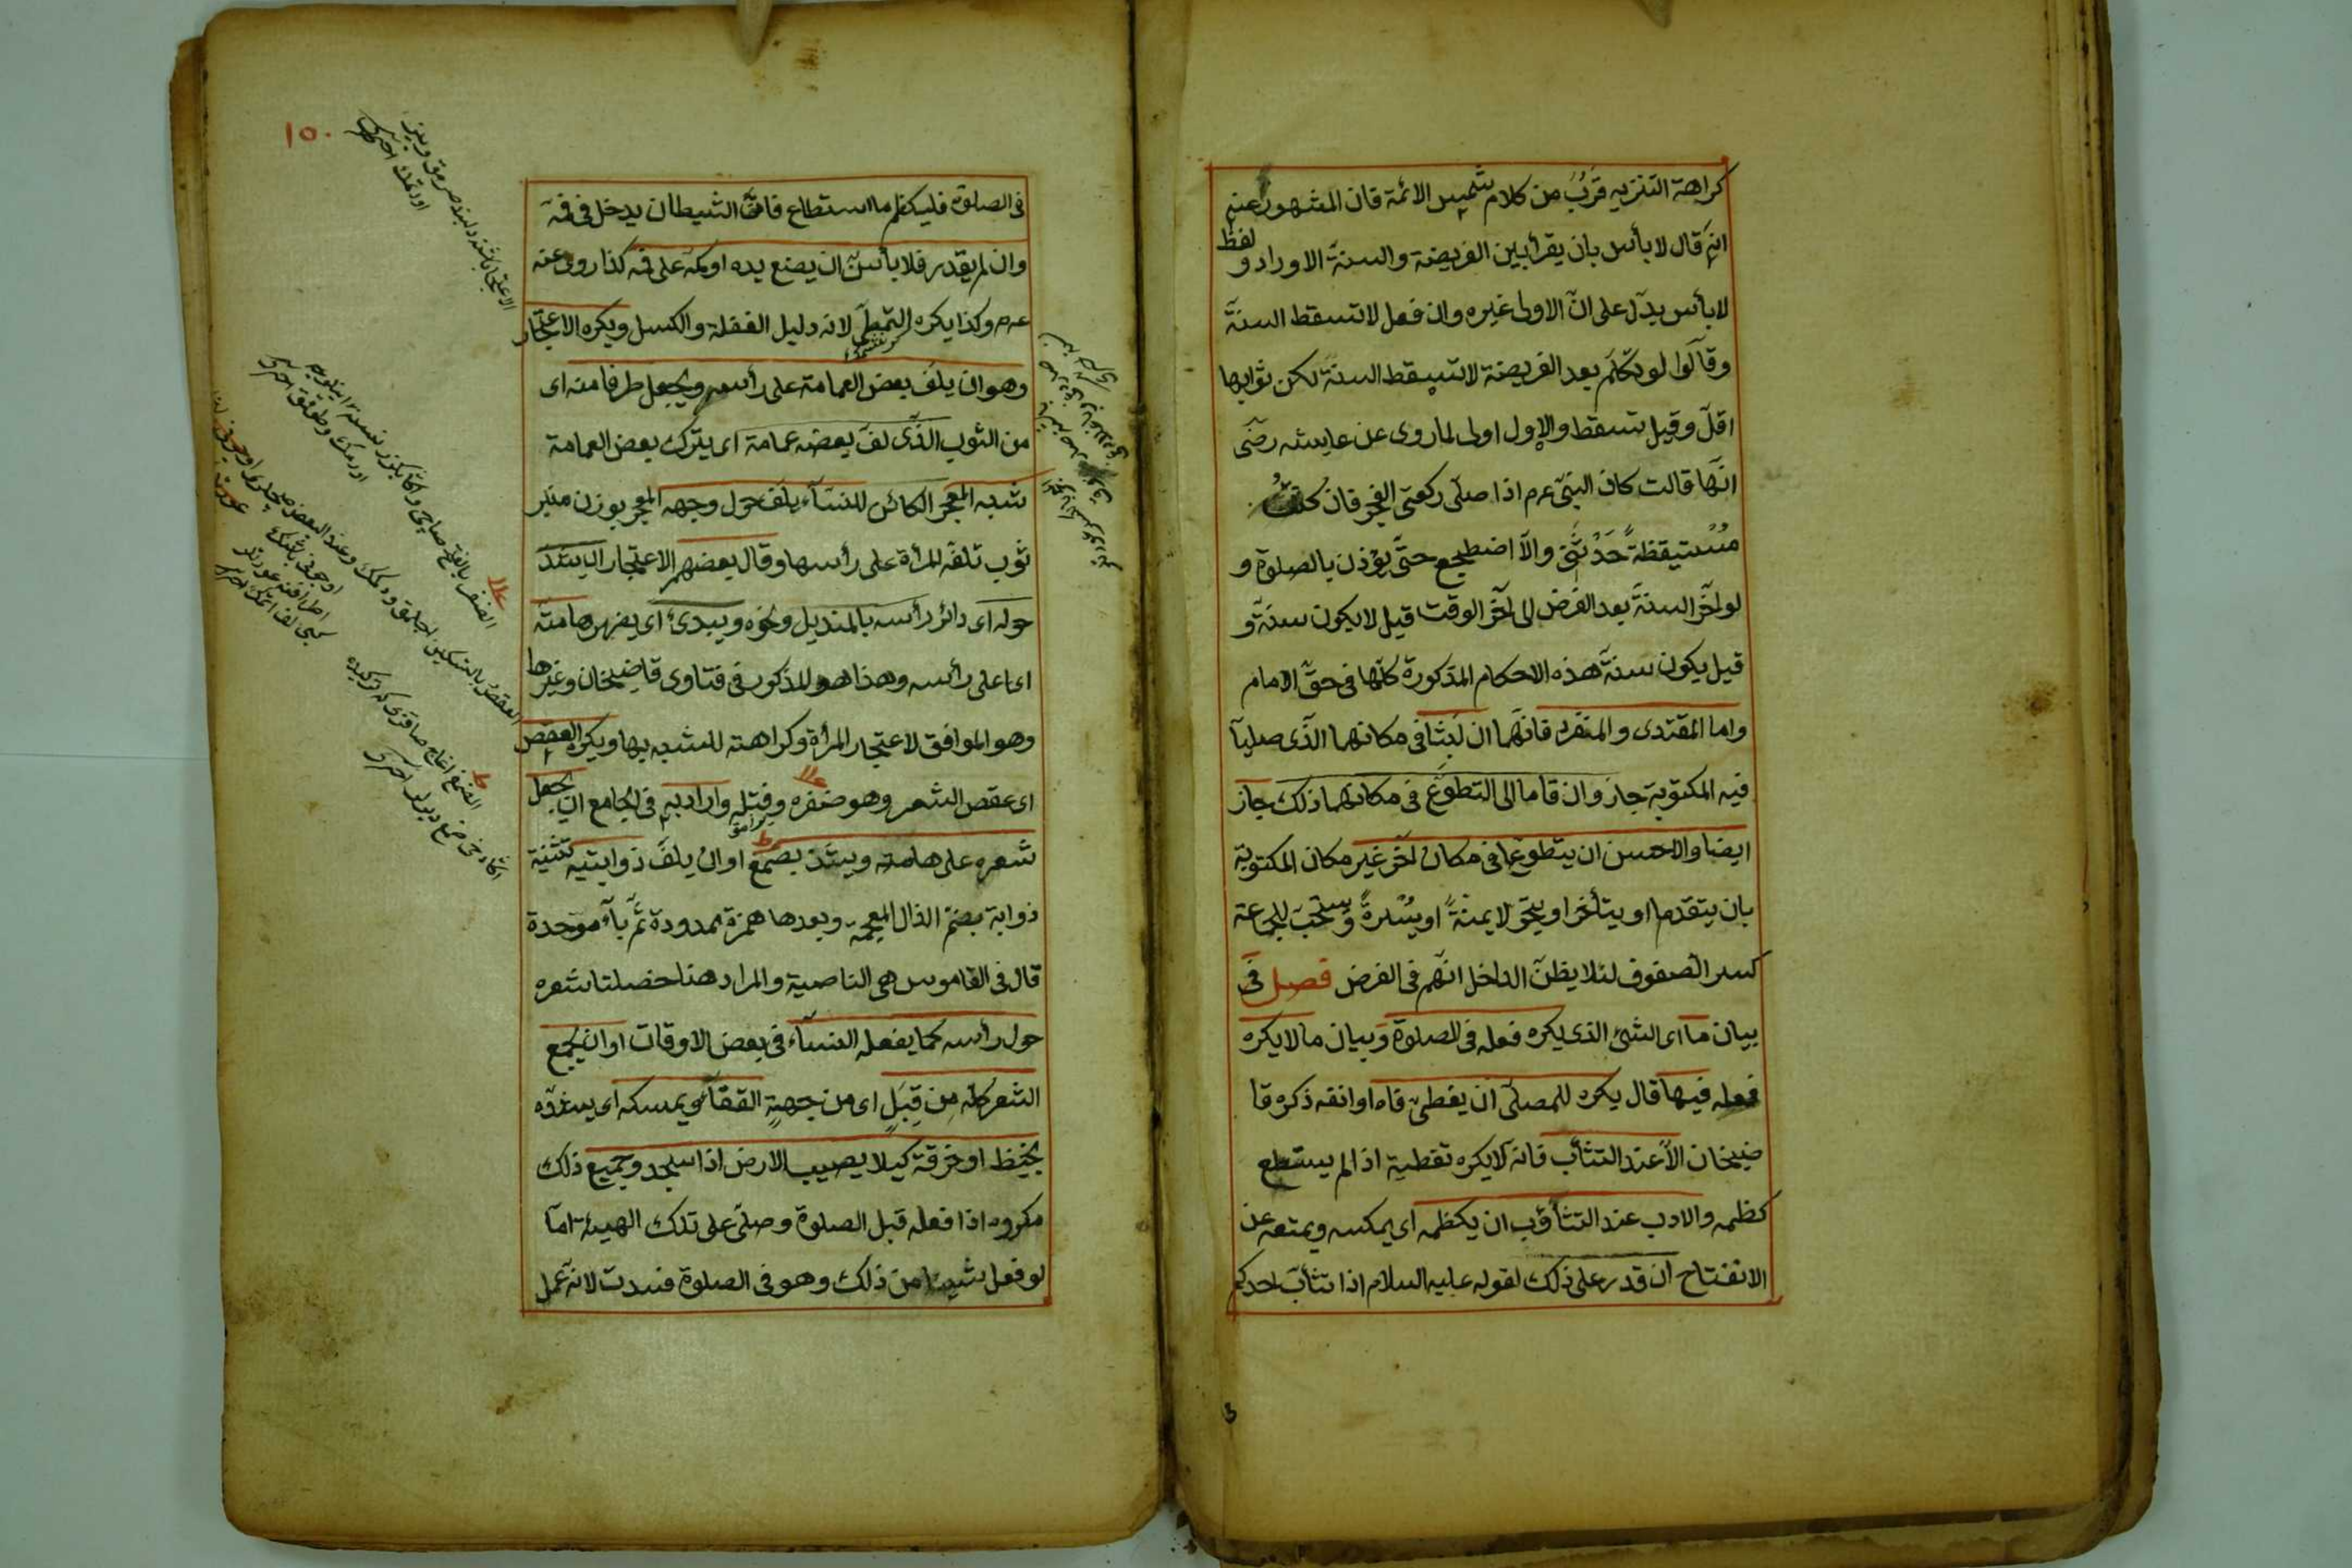 كراهة التنزيه قرب من كلام شمس الائمة فان المشهور عنه
انه قال لا بأس بان يقرأ بين الفريضة والسنة الاوراد و لفظ
لا بأس يدل على ان الاولى غيره وان فعل لا تسقط السنة
وقالوا لو تكلم بعد الفريضة لا تسقط السنة لكن ثوابها
اقل وقيل تسقط والاول اولى لما روى عن عايشه رضى
انها قالت كان النبى عم اذا صلى ركعتى الفجر فان كنت
مستيقظة حدثنى والا اضطجع حتى يؤذن بالصلوة و
لو اخر السنة بعد الفرض الى آخر الوقت قيل لا يكون سنة و
قيل يكون سنة هذه الاحكام المذكورة كلها فى حق الامام
واما المقتدى والمنفرد فانهما ان لبثا فى مكانهما الذى صليا
فيه المكتوبة جاز وان قاما الى التطوع فى مكانهما ذلك جاز
ايضا والاحسن ان يتطوعا فى مكان آخر غير مكان المكتوبة
بان يتقدما او يتأخرا او يتحولا يمنة او يسرة ويستحب للجماعة
كسر الصفوف لئلا يظن الداخل انهم فى الفرض فصل فى
بيان ما اى الشئ الذى يكره فعله فى الصلوة وبيان ما لا يكره
فعله فيها قال يكره للمصلى ان يغطى فاه او انفه ذكره قا
ضيخان الا عند التثأب فانه لا يكره تغطية اذا لم يستطع
كظمه والادب عند التثأوب ان يكظمه اى يمكسه ويمنعه عن
الانفتاح ان قدر على ذلك لقوله عليه السلام اذا تثأب احدكم
١٥٠
فى الصلوة فليكظم ما استطاع فان الشيطان يدخل فى فه
وان لم يقدر فلا بأس ان يضع يده او كمه على فه كذا روى عنه
عم وكذا يكره التمطى لانه دليل الغفلة والكسل ويكره الاعتجار
وهو ان يلف بعض العمامة على رأسه ويجعل طرفا منه اى
من الثوب الذى لف بعضه عمامة اى يترك بعض العمامة
شبه المعجر الكائن للنسآء يلف حول وجهه المعجر بوزن منبر
ثوب تلفه المرأة على رأسها وقال بعضهم الاعتجار ان يشد
حوله اى دائر رأسه بالمنديل ونحوه ويبدى اى يظهر هامته
اى اعلى رأسه وهذا هو المذكور فى فتاوى قاضيخان وغيرها
وهو الموافق لاعتجار المرأة وكراهته للتشبه بها ويكره العقص
اى عقص الشعر وهو ضفره وفتله واراد به فى الجامع ان يجعل
شعره على هامته ويشد بصمغ او ان يلف ذوابتيه تثنية
ذوابة بضم الذال المعجمة وبعدها همزة ممدودة ثم بآء موحدة
قال فى القاموس هى الناصية والمراد هنا خصلتا شعره
حول رأسه كما يفعله النسآء فى بعض الاوقات او ان يجمع
الشعر كله من قبل اى من جهة القفآء ويمسكه اى يشده
بخيط او خرقة كيلا يصيب الارض اذا سجد وجميع ذلك
مكروه اذا فعله قبل الصلوة وصلى على تلك الهيئة اما
لو فعل شيئا من ذلك وهو فى الصلوة فسدت لانه عمل